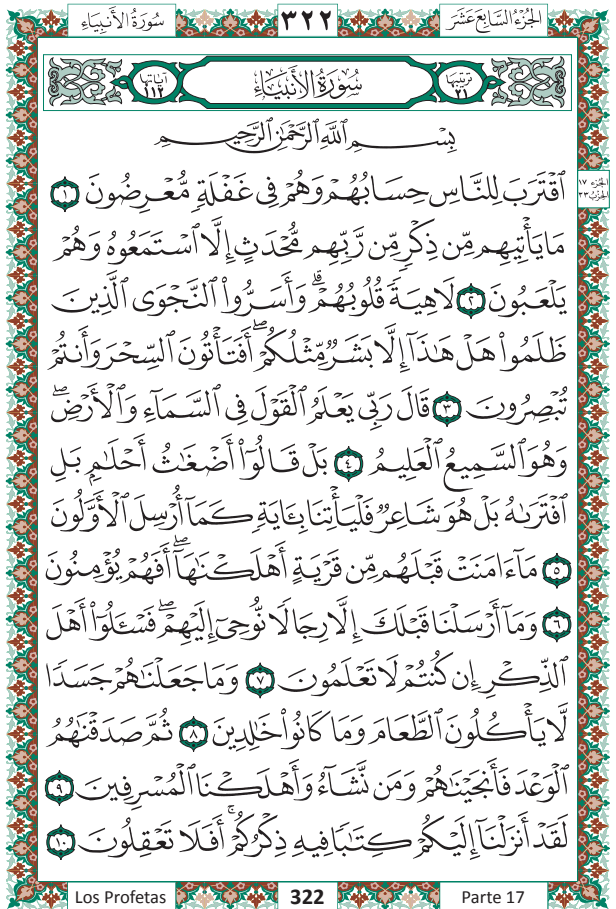 سُورَةُ الأَنبِيَاءِ ٣٢٢ الجُزْءُ السَّابِعَ عَشَرَ
آيَاتُهَا ١١٢ سُورَةُ الأَنبِيَاءِ تَرْتِيبُهَا ٢١
بِسْمِ ٱللَّهِ ٱلرَّحْمَٰنِ ٱلرَّحِيمِ
ٱقْتَرَبَ لِلنَّاسِ حِسَابُهُمْ وَهُمْ فِى غَفْلَةٍ مُّعْرِضُونَ ١
الجزء ١٧
الحزب ٣٣
مَا يَأْتِيهِم مِّن ذِكْرٍ مِّن رَّبِّهِم مُّحْدَثٍ إِلَّا ٱسْتَمَعُوهُ وَهُمْ
يَلْعَبُونَ ٢ لَاهِيَةً قُلُوبُهُمْ ۗ وَأَسَرُّوا۟ ٱلنَّجْوَى ٱلَّذِينَ
ظَلَمُوا۟ هَلْ هَٰذَآ إِلَّا بَشَرٌ مِّثْلُكُمْ ۖ أَفَتَأْتُونَ ٱلسِّحْرَ وَأَنتُمْ
تُبْصِرُونَ ٣ قَالَ رَبِّى يَعْلَمُ ٱلْقَوْلَ فِى ٱلسَّمَآءِ وَٱلْأَرْضِ ۖ
وَهُوَ ٱلسَّمِيعُ ٱلْعَلِيمُ ٤ بَلْ قَالُوٓا۟ أَضْغَٰثُ أَحْلَٰمٍۭ بَلِ
ٱفْتَرَىٰهُ بَلْ هُوَ شَاعِرٌ فَلْيَأْتِنَا بِـَٔايَةٍ كَمَآ أُرْسِلَ ٱلْأَوَّلُونَ
٥ مَآ ءَامَنَتْ قَبْلَهُم مِّن قَرْيَةٍ أَهْلَكْنَٰهَآ ۖ أَفَهُمْ يُؤْمِنُونَ
٦ وَمَآ أَرْسَلْنَا قَبْلَكَ إِلَّا رِجَالًا نُّوحِىٓ إِلَيْهِمْ ۖ فَسْـَٔلُوٓا۟ أَهْلَ
ٱلذِّكْرِ إِن كُنتُمْ لَا تَعْلَمُونَ ٧ وَمَا جَعَلْنَٰهُمْ جَسَدًا
لَّا يَأْكُلُونَ ٱلطَّعَامَ وَمَا كَانُوا۟ خَٰلِدِينَ ٨ ثُمَّ صَدَقْنَٰهُمُ
ٱلْوَعْدَ فَأَنجَيْنَٰهُمْ وَمَن نَّشَآءُ وَأَهْلَكْنَا ٱلْمُسْرِفِينَ ٩
لَقَدْ أَنزَلْنَآ إِلَيْكُمْ كِتَٰبًا فِيهِ ذِكْرُكُمْ ۖ أَفَلَا تَعْقِلُونَ ١٠
Los Profetas 322 Parte 17